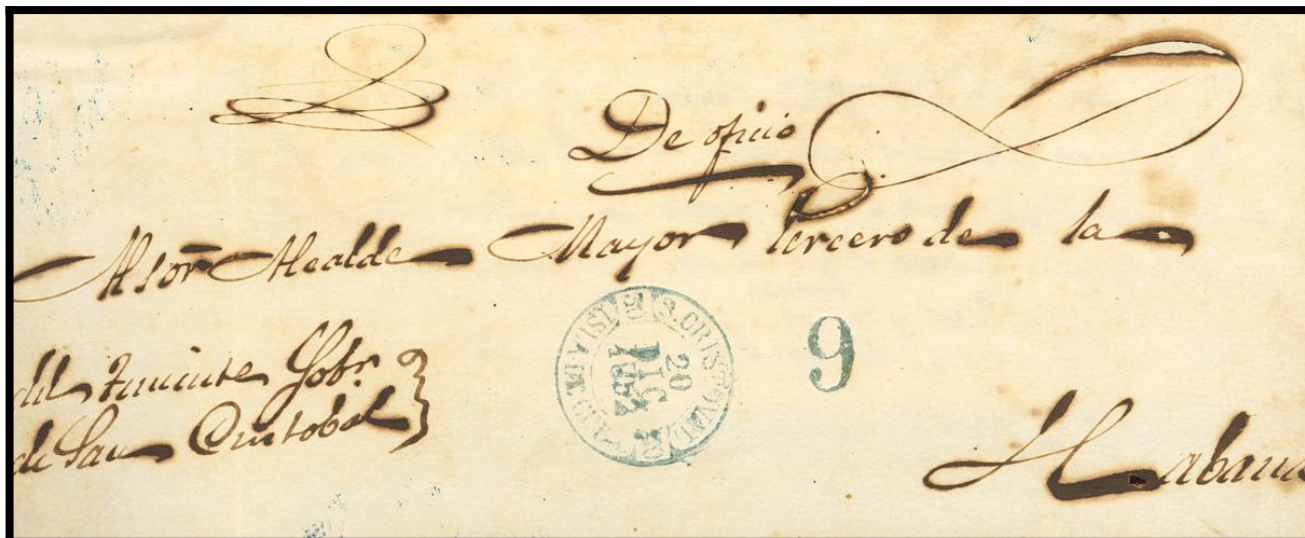 De oficio
Al Sor Alcalde Mayor tercero de la
del Teniente Gobr
de San Cristobal
S.CRISTOVAL
20
DIC
9
Habana